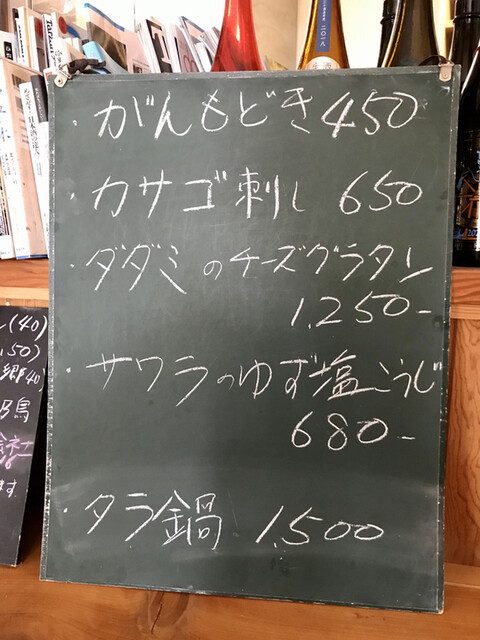 ・がんもどき 450
・カサゴ刺し 650
・ダダミのチーズグラタン
1,250-
・サワラのゆず塩こうじ
680-
・タラ鍋 1,500
(40)
,50)
郷40)
乃鳥
ます
二〇一八
生酒